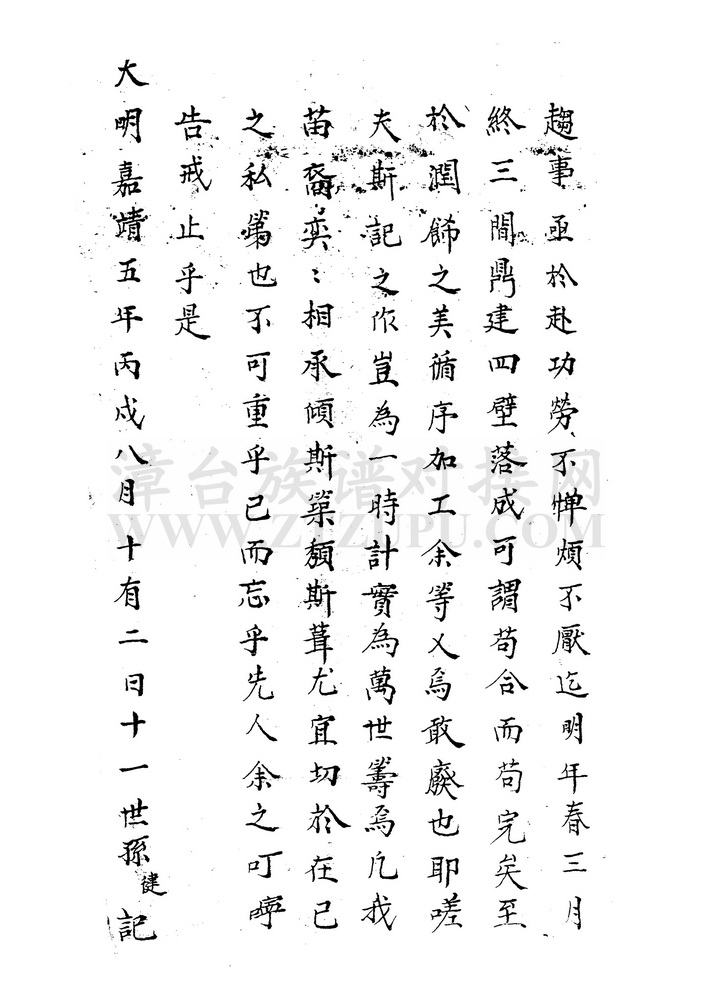 趨事亟於赴功勞不憚煩不厭迄明年春三月
終三間鼎建四壁落成可謂苟合而苟完矣至
於潤飾之美循序加工余等乂焉敢廢也耶嗟
夫斯記之作豈為一時計實為萬世籌焉凡我
苗裔奕〻相承傾斯築頹斯葺尤宜切於在己
之私第也不可重乎己而忘乎先人余之叮嚀
告戒止乎是
大明嘉靖五年丙戌八月十有二日十一世孫健記
漳台族谱对接网
WWW.ZTZUPU.COM